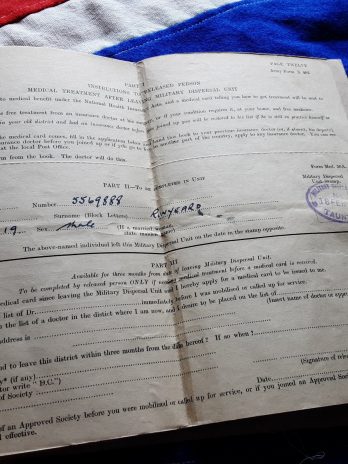 PAGE TWELVE
Army Form X
PART I
INSTRUCTIONS TO RELEASED PERSON
MEDICAL TREATMENT AFTER LEAVING MILITARY DISPERSAL UNIT
to medical benefit under the National Health Insurance Acts, and a medical card telling you how to get treatment will be sent to
free treatment from an insurance doctor at his or your condition requires it, at your home, and free medicine.
your old district and had an insurance doctor before joined up you will be restored to his list if he is still in practice himself or
medical card comes, fill in the application below and take this book to your previous insurance doctor (or, if absent, his deputy).
insurance doctor before you joined up or if you go to another part of the country, apply to any insurance doctor. You can see
at the local Post Office.
form from the book. The doctor will do this.
Form Med. 50A.
PART II—TO BE COMPLETED IN UNIT
Military Dispersal
Unit Stamp.
Number 5569888
Surname (Block Letters)
19 Sex Male (If a married
date
The above-named individual left this Military Dispersal Unit on the date in the stamp opposite.
PART III
Available for three months from date of leaving Military Dispersal Unit.
To be completed by released person ONLY if needing medical treatment before a medical card is received.
medical card since leaving the Military Dispersal Unit and I hereby apply for a medical card to be issued to me.
list of Dr. immediately before I was mobilised or called up for service.
the list of a doctor in the district where I am now, and I desire to be placed on the list of
(Insert name of doctor
tend to leave this district within three months from the date hereof? If so when?
(Signature of
(if any)
Date
doctor write "D.C.")
of Society
of an Approved Society before you were mobilised or called up for service, or if you joined an Approved Society
effective.